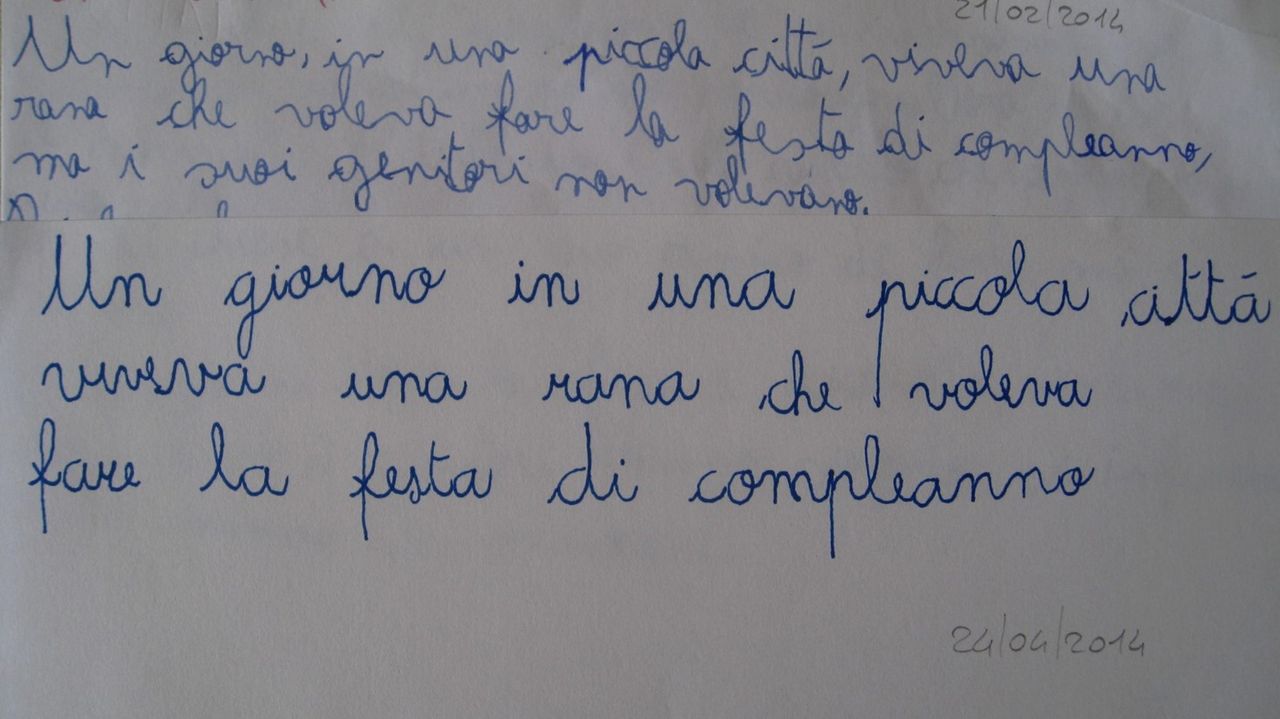 21/02/2014
Un giorno, in una piccola città, viveva una
rana che voleva fare la festa di compleanno,
ma i suoi genitori non volevano.
Un giorno in una piccola città
viveva una rana che voleva
fare la festa di compleanno
24/04/2014